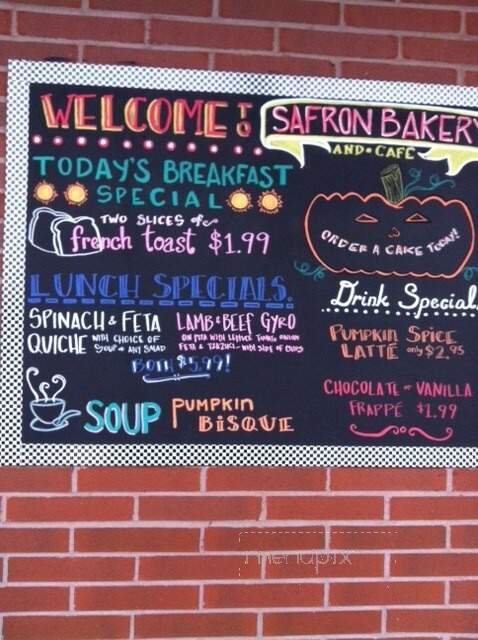 WELCOME TO
SAFRON BAKERY
AND • CAFE
TODAY'S BREAKFAST
SPECIAL
TWO SLICES of
french toast $1.99
ORDER A CAKE TODAY!
LUNCH SPECIALS.
SPINACH & FETA
QUICHE WITH CHOICE OF
SOUP or ANY SALAD
LAMB & BEEF GYRO
ON PITA WITH LETTUCE TOMATO ONION
FETA & TZATZIKI - WITH SIDE OF CHIPS
BOTH $5.99!
SOUP PUMPKIN
BISQUE
Drink Special
PUMPKIN SPICE
LATTE only $2.95
CHOCOLATE or VANILLA
FRAPPÉ $1.99
menupix